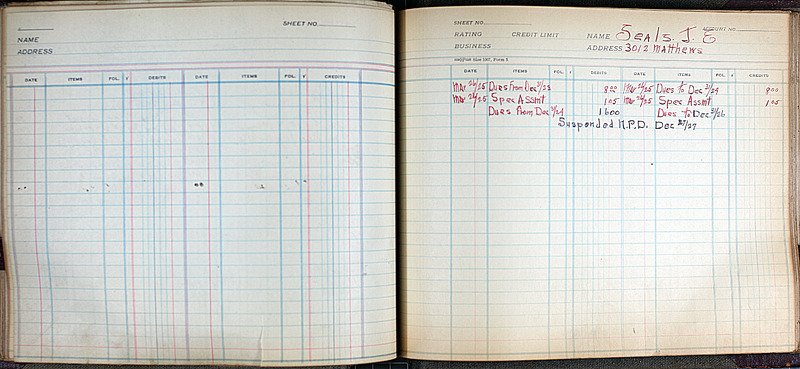 SHEET NO.
NAME
ADDRESS
DATE ITEMS FOL. √ DEBITS DATE ITEMS FOL. √ CREDITS
SHEET NO.
RATING CREDIT LIMIT NAME Seals. J. E ACCOUNT NO.
BUSINESS ADDRESS 3012 Matthews
DATE ITEMS FOL. √ DEBITS DATE ITEMS FOL. √ CREDITS
Mar 26/25 Dues From Dec 31/23 8 00 Mar 26/25 Dues to Dec 31/24 8 00
Mar 26/25 Spec Assmt 1 05 Mar 26/25 Spec Assmt 1 05
Dues From Dec 31/24 16 00 Dues to Dec 31/26
Suspended N.P.D. Dec 27/27